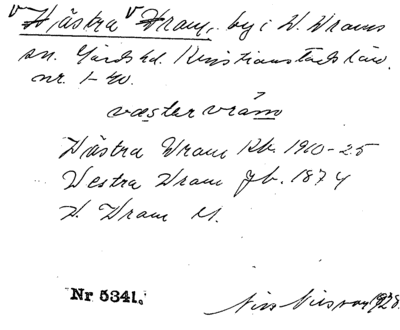 Västra Vram, by i V. Vrams
sn. Gärds hd. Kristianstads län.
nr. 1-40.
væster vråm
Västra Vram Kb. 1910-25
Vestra Vram Jb. 1874
V. Vram M.
Nr 5341.
Nils Nilsson 1928.